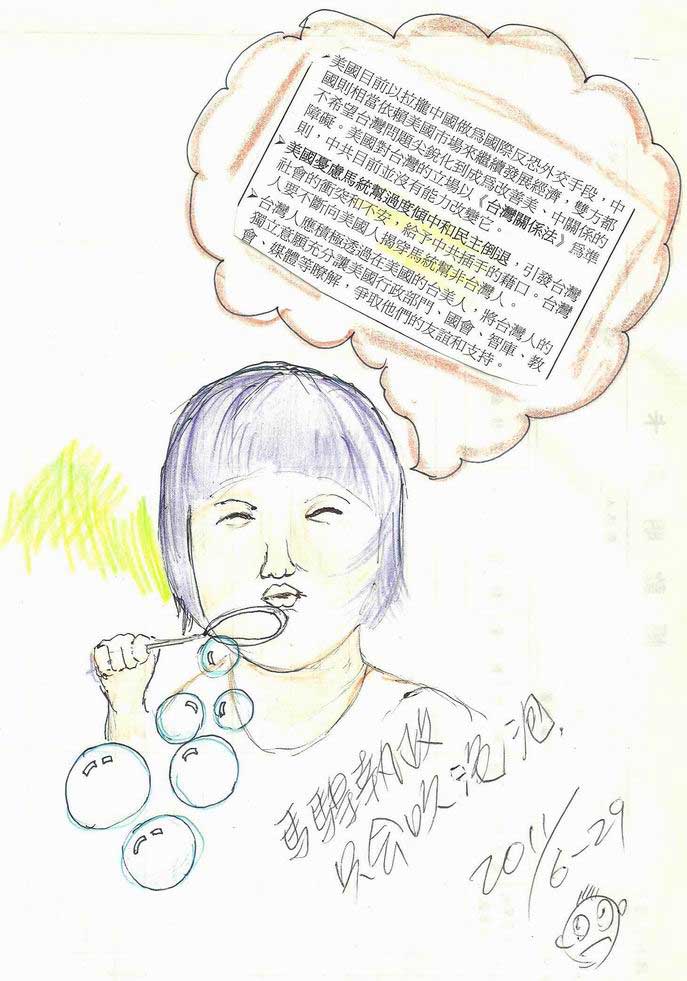 ➤美國目前以拉攏中國做為國際反恐外交手段，中
國則相當依賴美國市場來繼續發展經濟，雙方都
不希望台灣問題尖銳化到成為改善美、中關係的
障礙。美國對台灣的立場以《台灣關係法》為準
則，中共目前並沒有能力改變它。
➤美國憂慮馬統幫過度傾中和民主倒退，引發台灣
社會的衝突和不安，給予中共插手的藉口。台灣
人要不斷向美國人揭穿馬統幫非台灣人。
➤台灣人應積極透過在美國的台美人，將台灣人的
獨立意願充分讓美國行政部門、國會、智庫、教
會、媒體等瞭解，爭取他們的友誼和支持。
馬騜執政
只会吹泡泡.
2011/6-29